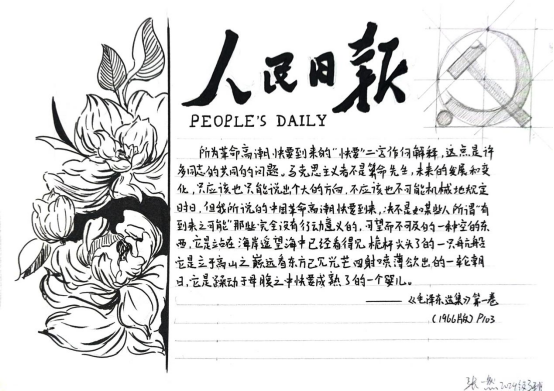 人民日报
PEOPLE'S DAILY
所为革命高潮快要到来的“快要”二字作何解释，这点是许
多同志的共同的问题。马克思主义者不是算命先生，未来的发展和变
化，只应该也只能说出个大的方向，不应该也不可能机械地规定
时日。但我所说的中国革命高潮快要到来，决不是如某些人所谓“有
到来之可能”那些完全没有行动意义的，可望而不可及的一种空的东
西。它是站在海岸遥望海中已经看得见桅杆尖头了的一只航船
它是立于高山之巅远看东方已见光芒四射喷薄欲出的一轮朝
日，它是躁动于母腹之中快要成熟了的一个婴儿。
——《毛泽东选集》第一卷
（1966版）P103